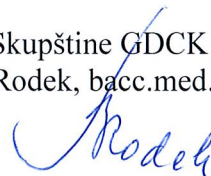 Skupštine GDCK
Rodek, bacc.med.
Rodek